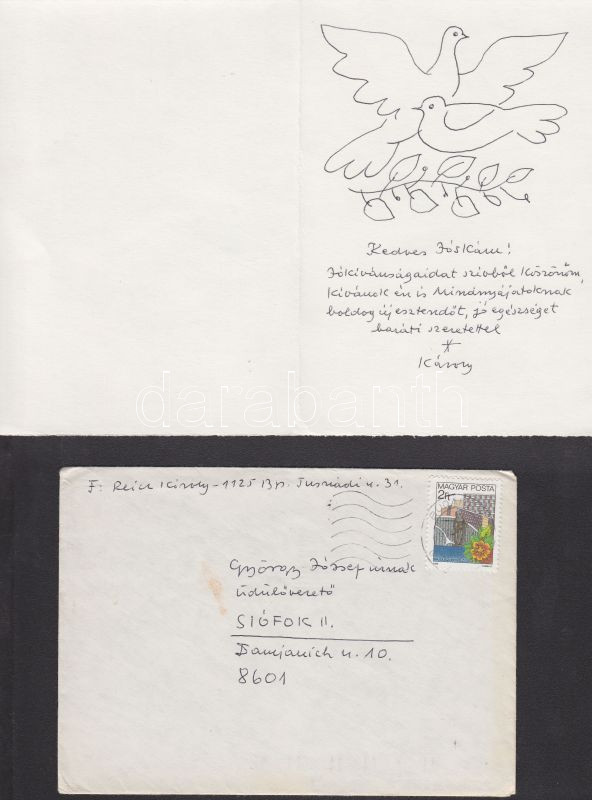 Kedves Jóskám!
Jókívánságaidat szivből köszönöm,
kivánok én is Mindnyájatoknak
boldog új esztendőt, jó egészséget
baráti szeretettel
Károly
darabanth
F: Reich Károly - 1125 Bp. Tusnádi u. 31.
MAGYAR POSTA
2Ft
György József úrnak
üdülővezető
SIÓFOK II.
Damjanich u. 10.
8601